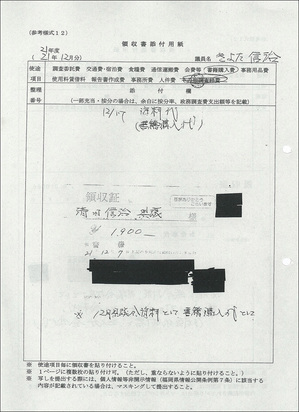 (参考様式12)
領収書添付用紙
21年度
(21年12月分)
議員名 きよた信治
使途 調査委託費 交通費・宿泊費 食糧費 通信運搬費 会費等 書籍購入費 事務用品費
項目 使用料賃借料 報告書作成費 事務所費 人件費
整理 添付欄
番号 (一部充当・按分の場合は、余白に按分率、政務調査費支出額等を記載)
12/17 資料代
(書籍購入代)
領収証
清田信治 様
¥1,900
21 12 9
※ 12月 資料として書籍購入代として
※ 使途項目毎に領収書を貼り付けること。
※ 1ページに複数枚の貼り付け可。(ただし、重ならないように貼り付けること。)
※ 写しを提出する際には、個人情報等非開示情報(福岡県情報公開条例第7条)に該当する
内容が記載されている場合は、マスキングして提出すること。